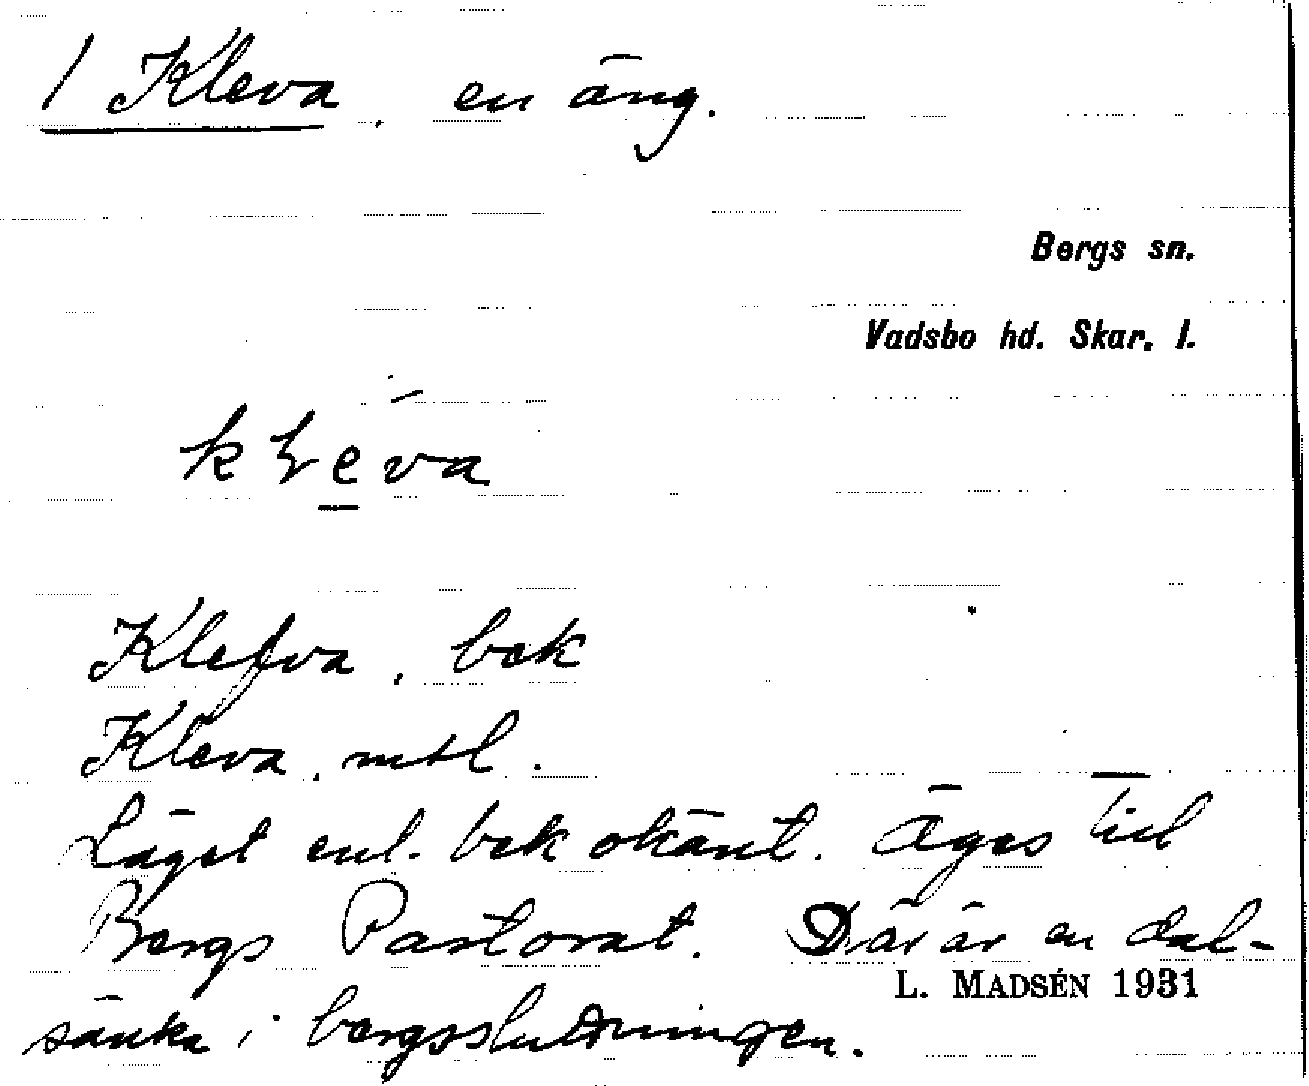 1 Kleva, en äng.
Bergs sn.
Vadsbo hd. Skar. l.
Klefva, bek
Kleva, mtl.
Läget enl. bek okänt. Äges till
Bergs Pastorat. Där är en dal-
sänka i bergssluttningen.
L. MADSÉN 1931